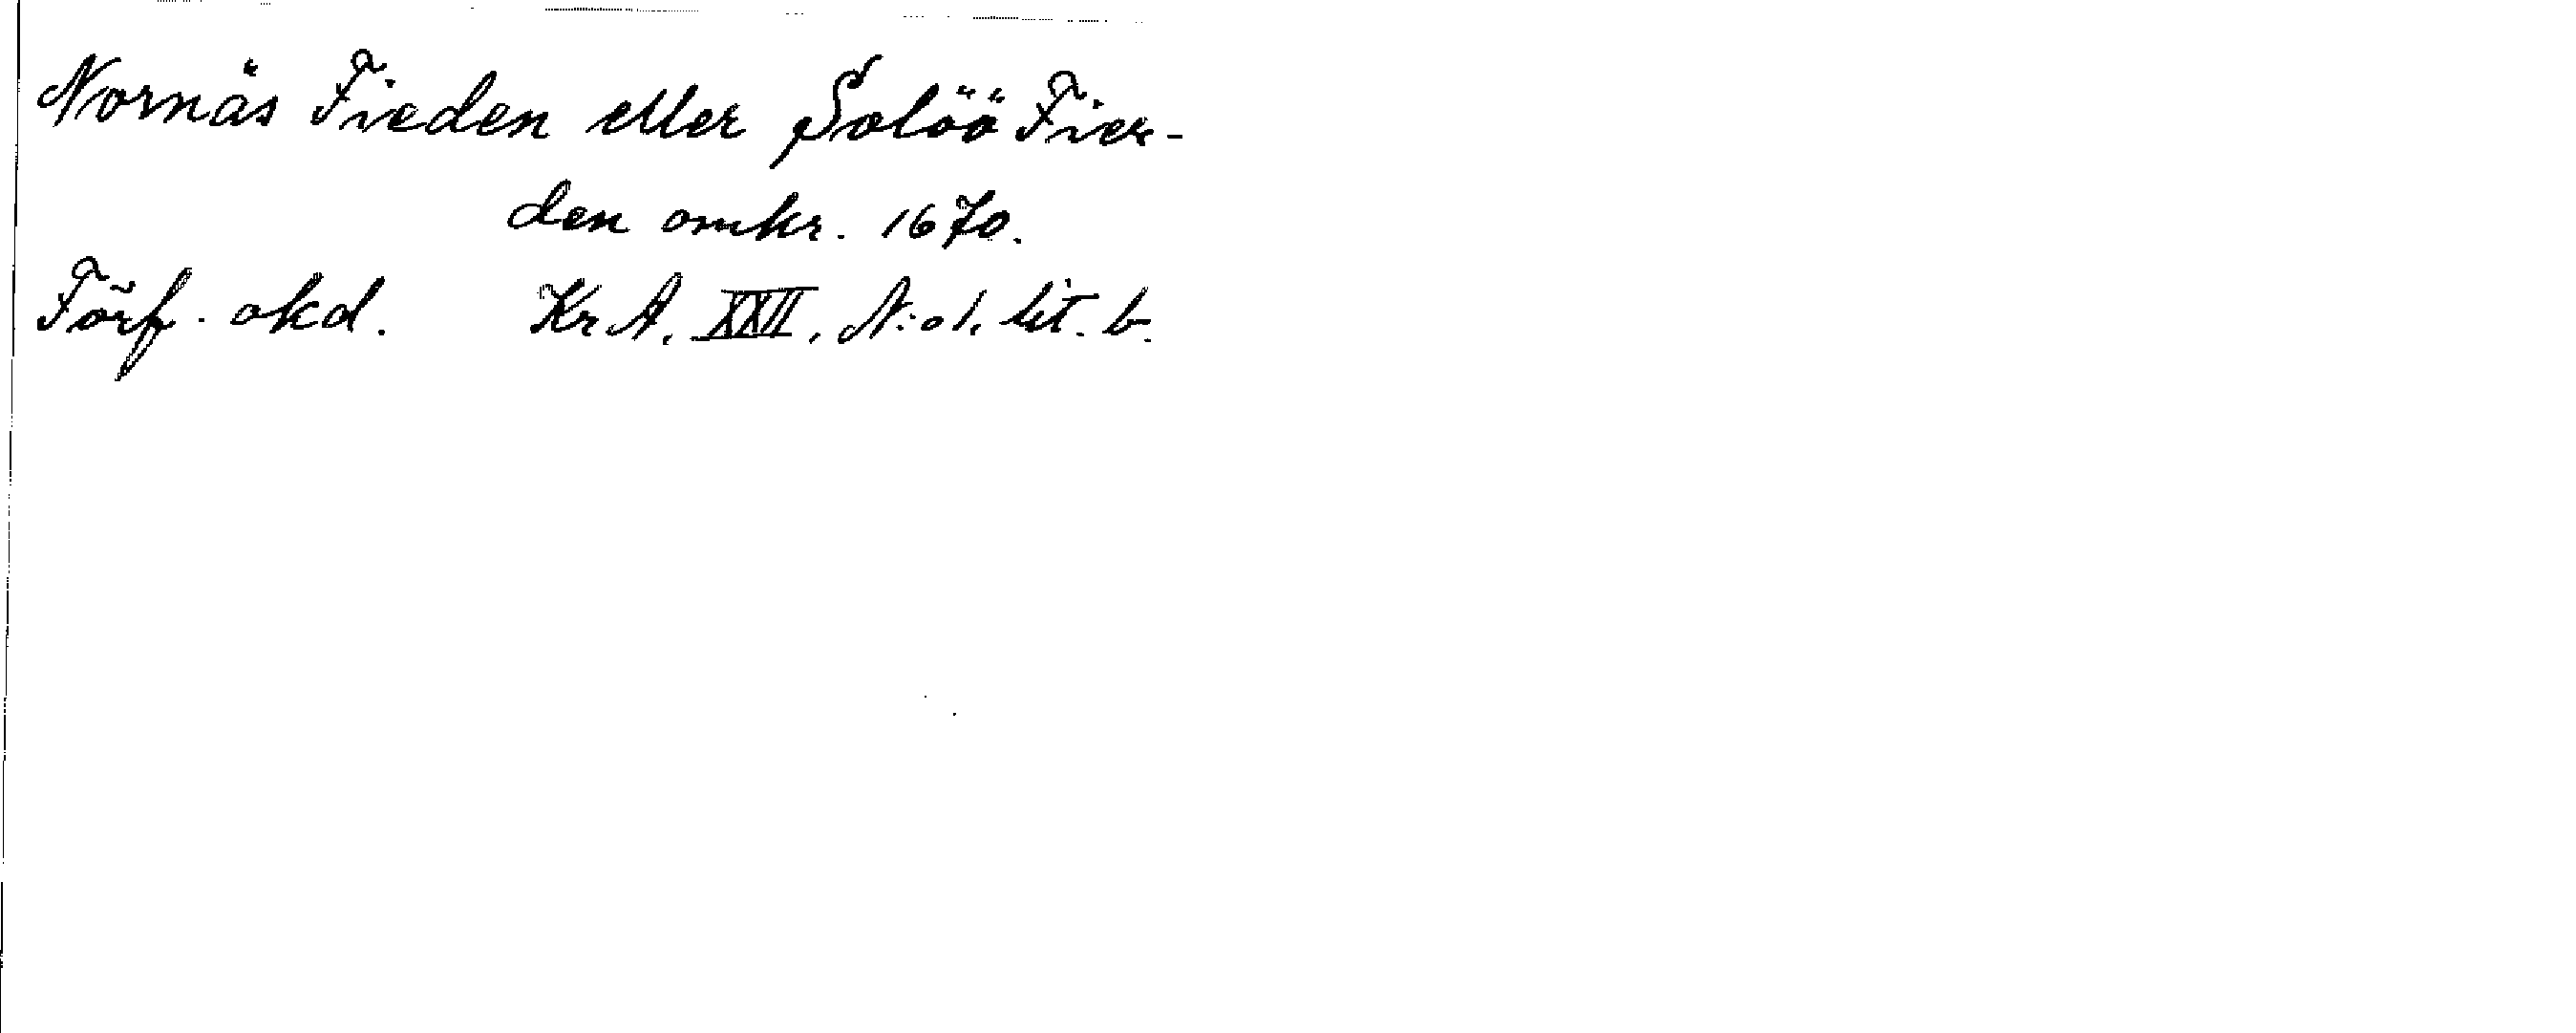 Nornäs Fieden eller Solöö Fier-
den omkr. 1670.
Förf. okd. Kr A. XXII, N:o 1. lit. b.